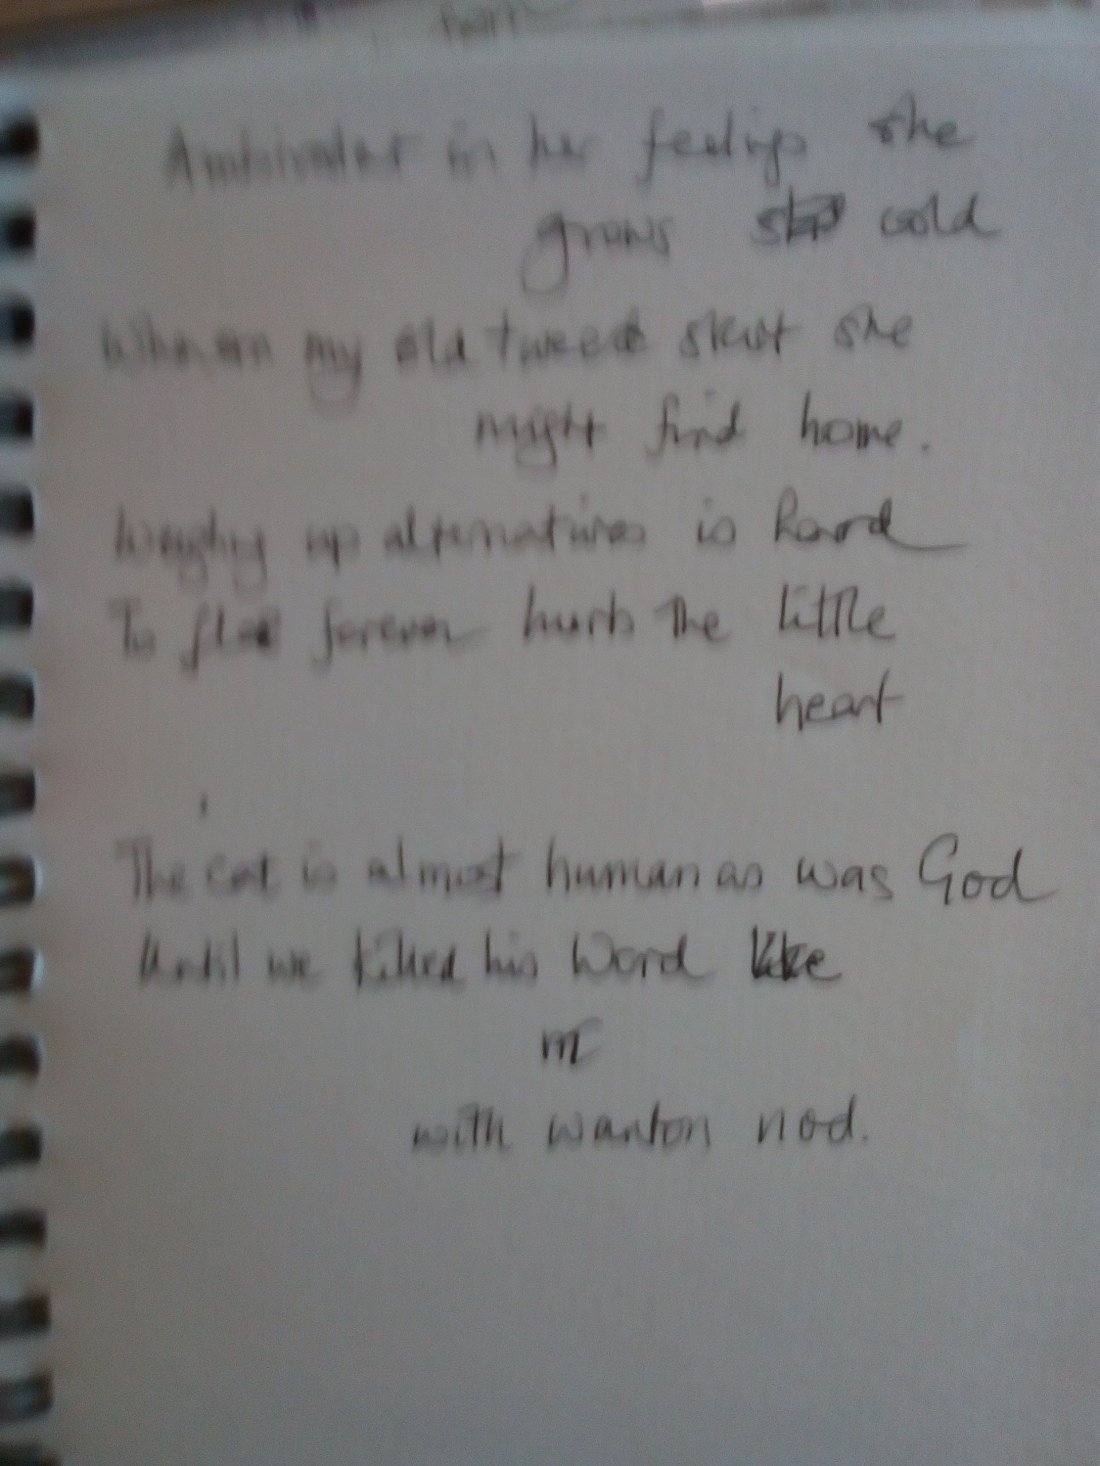 Ambivalent in her feelings she
grows cold
When on my old tweed skirt she
might find home.
Weighing up alternatives is hard
To float forever hurts the little
heart
The cat is almost human as was God
Until we killed his Word like
with wanton nod.